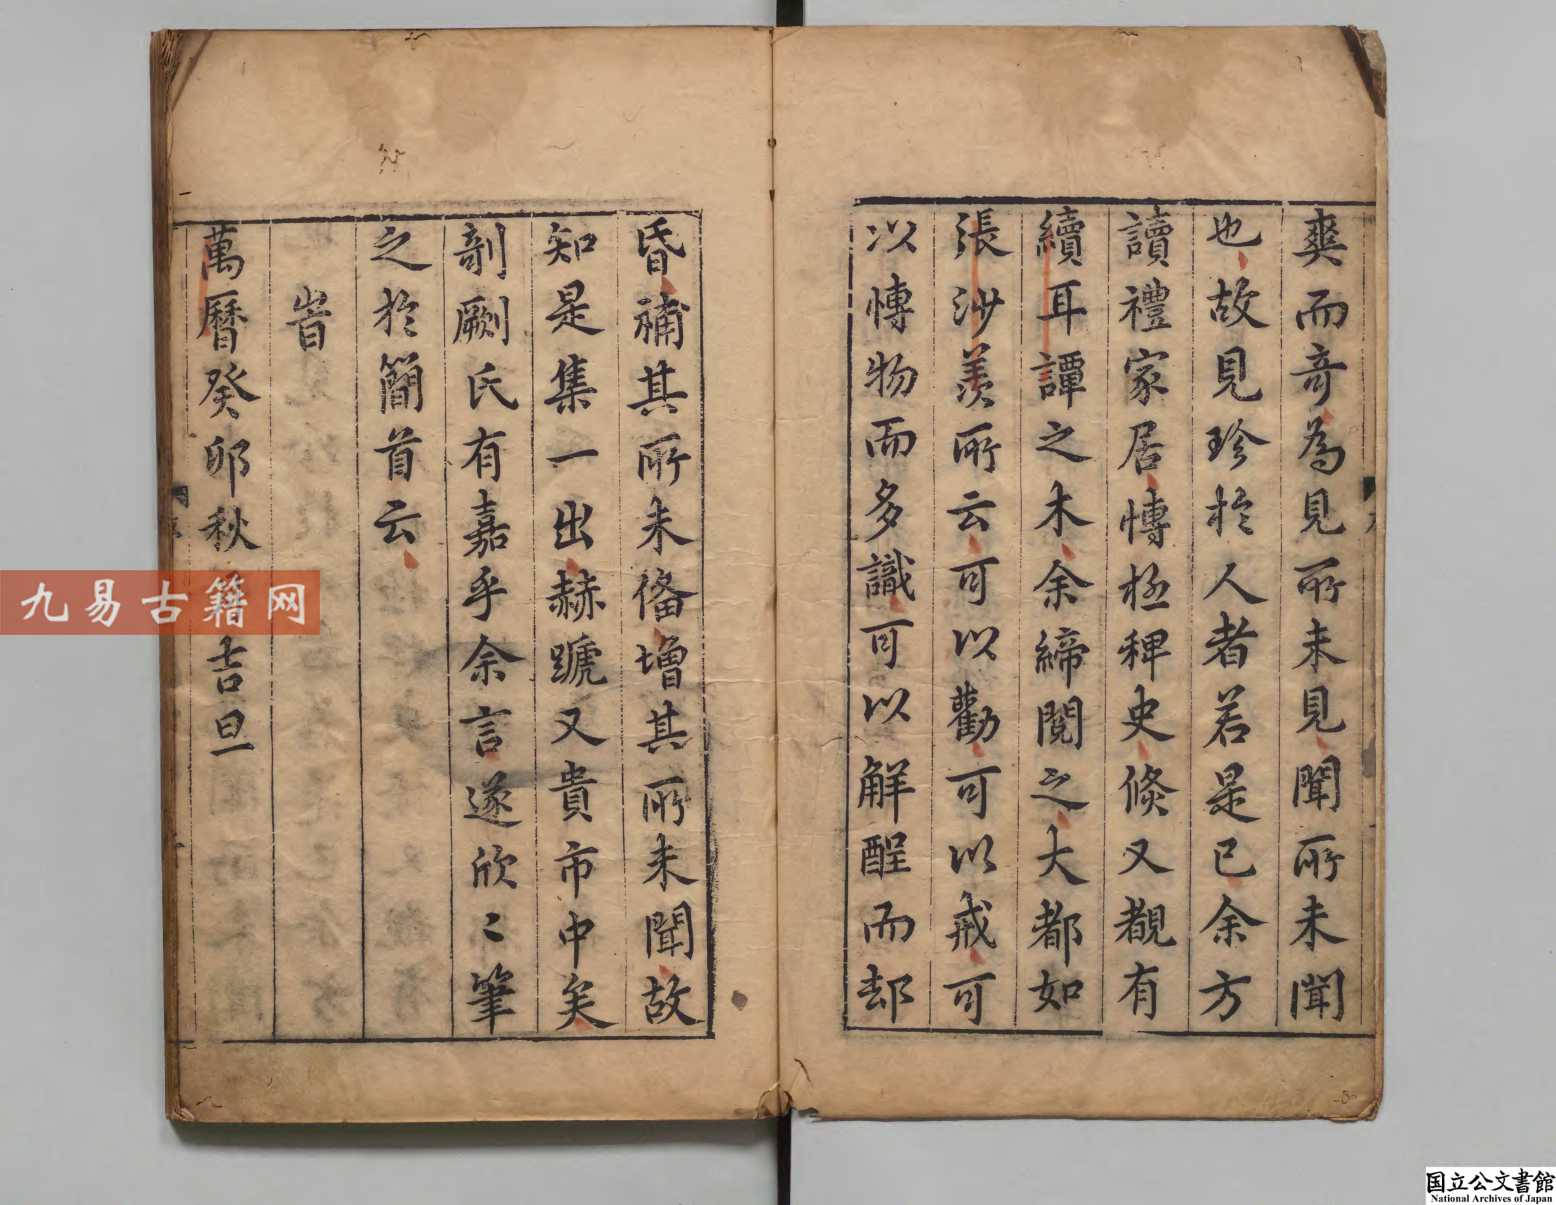 爽而奇為見所未見聞所未聞
也故見珍於人者若是已余方
讀禮家居愽極稗史倐又覩有
續耳譚之木余締閱之大都如
張沙羨所云可以勸可以戒可
以愽物而多識可以解酲而却
昏補其所未俻增其所未聞故
知是集一出赫蹏又貴市中矣
剞劂氏有嘉乎余言遂欣〻筆
之於簡首云
旹
萬曆癸卯秋吉旦
九易古籍网
国立公文書館
National Archives of Japan